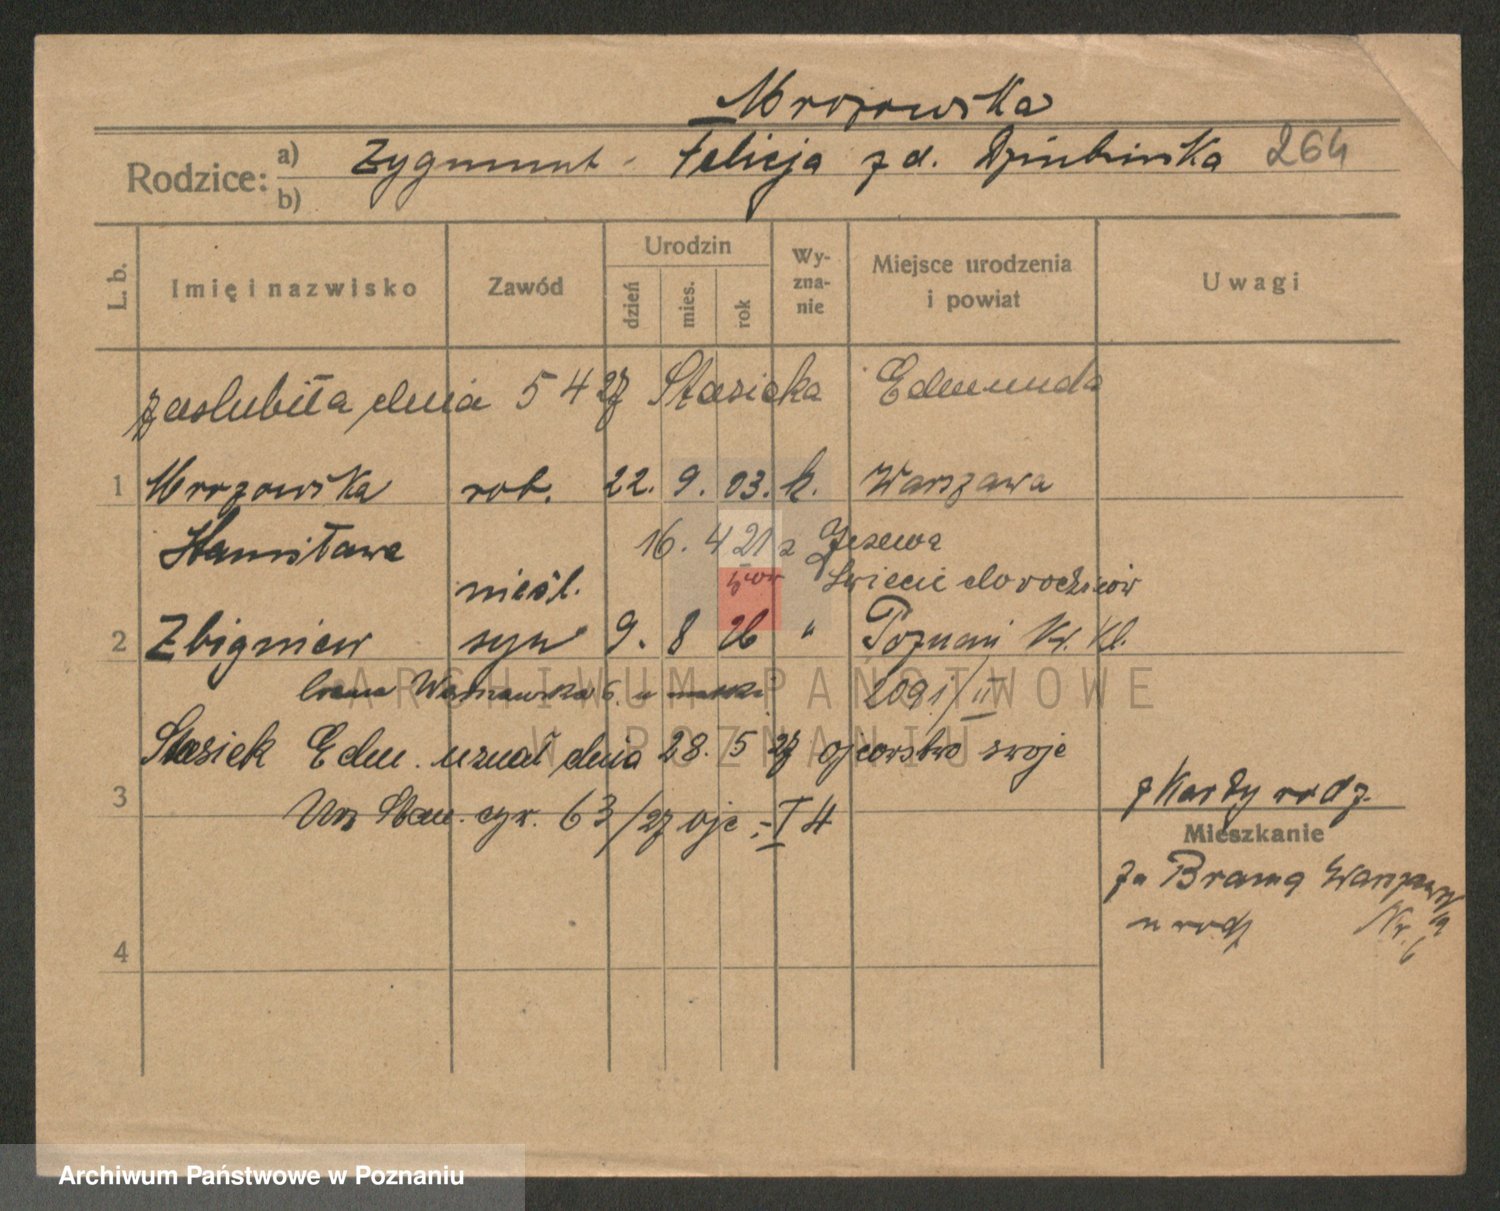 Mrozowska
Rodzice: a) Zygmunt - Felicja z d. Dziubińska 264
b)
L. b. Imię i nazwisko Zawód Urodzin dzień mies. rok Wyznanie Miejsce urodzenia i powiat Uwagi
zaślubiła dnia 5 4 27 Stasieka Edmunda
1 Mrozowska rob. 22. 9. 03. k. Warszawa
Stanisława 16. 4 21 z Jezewa
nieśl. Świecie do rodziców
2 Zbigniew syn 9. 8 26 " Poznań Kr. Kl.
Brama Warszawska 6. u matki 2091/II
Stasiek Edm. uznał dnia 28. 5 27 ojcostwo swoje
3 Urz Stan. cyr. 63/27 oje :- I 4
z Karty rodz.
Mieszkanie
za Bramą Warszawsk
u rodz Nr.
4
ARCHIWUM PAŃSTWOWE
W POZNANIU
Archiwum Państwowe w Poznaniu